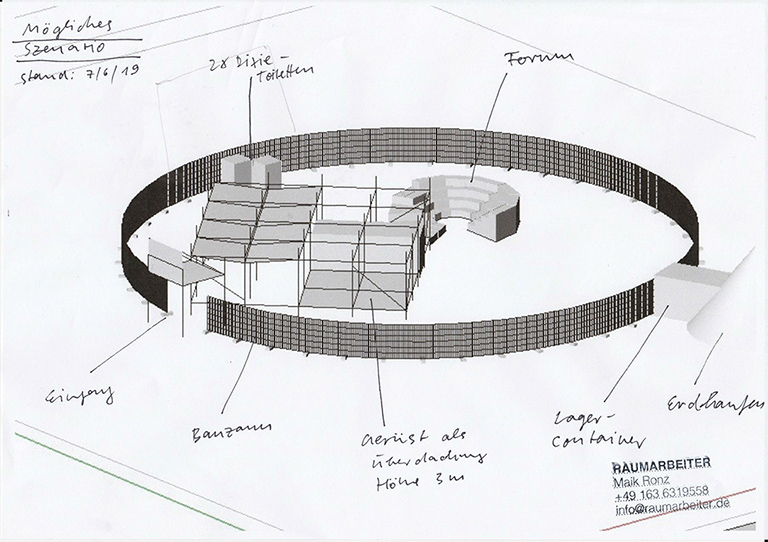 Mögliches
Szenario
stand: 7/6/19
2x Dixie-
Toiletten
Forum
Eingang
Bauzaun
Gerüst als
Überdachung
Höhe 3m
Lager-
Container
Erdhaufen
RAUMARBEITER
Maik Ronz
+49 163 6319558
info@raumarbeiter.de